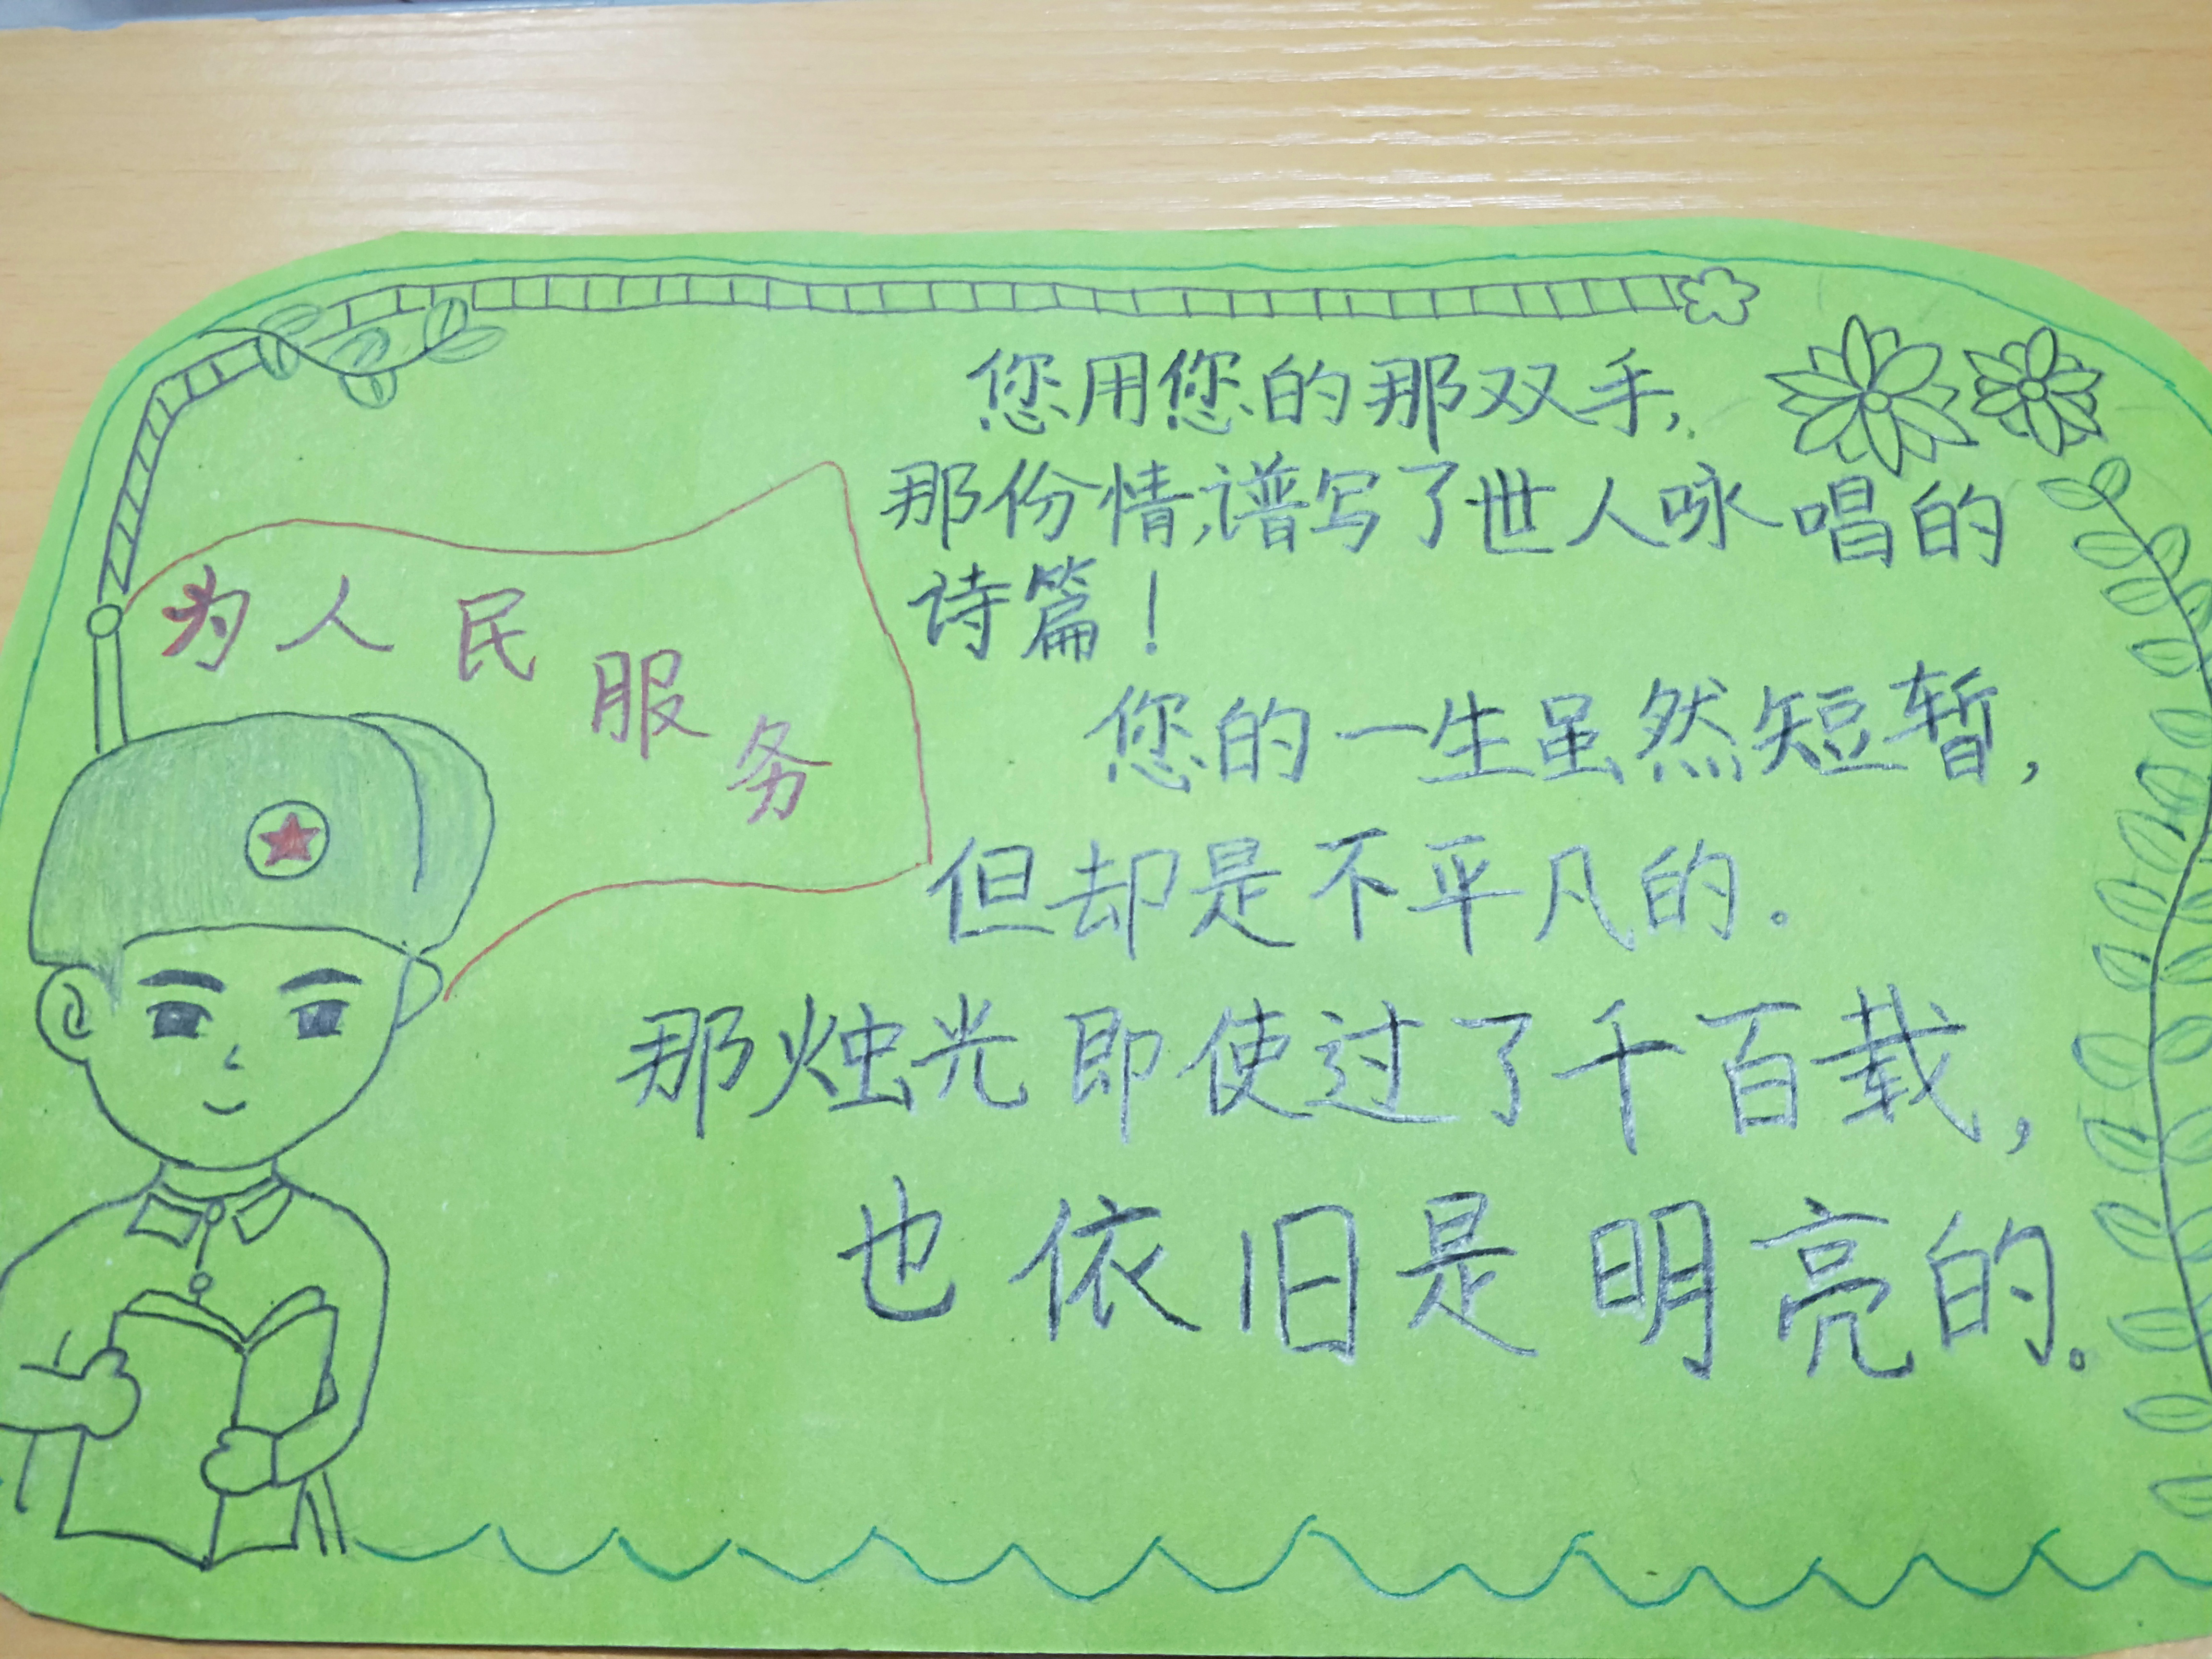 为人民服务
您用您的那双手，
那份情，谱写了世人咏唱的
诗篇！
您的一生虽然短暂，
但却是不平凡的。
那烛光即使过了千百载，
也依旧是明亮的。